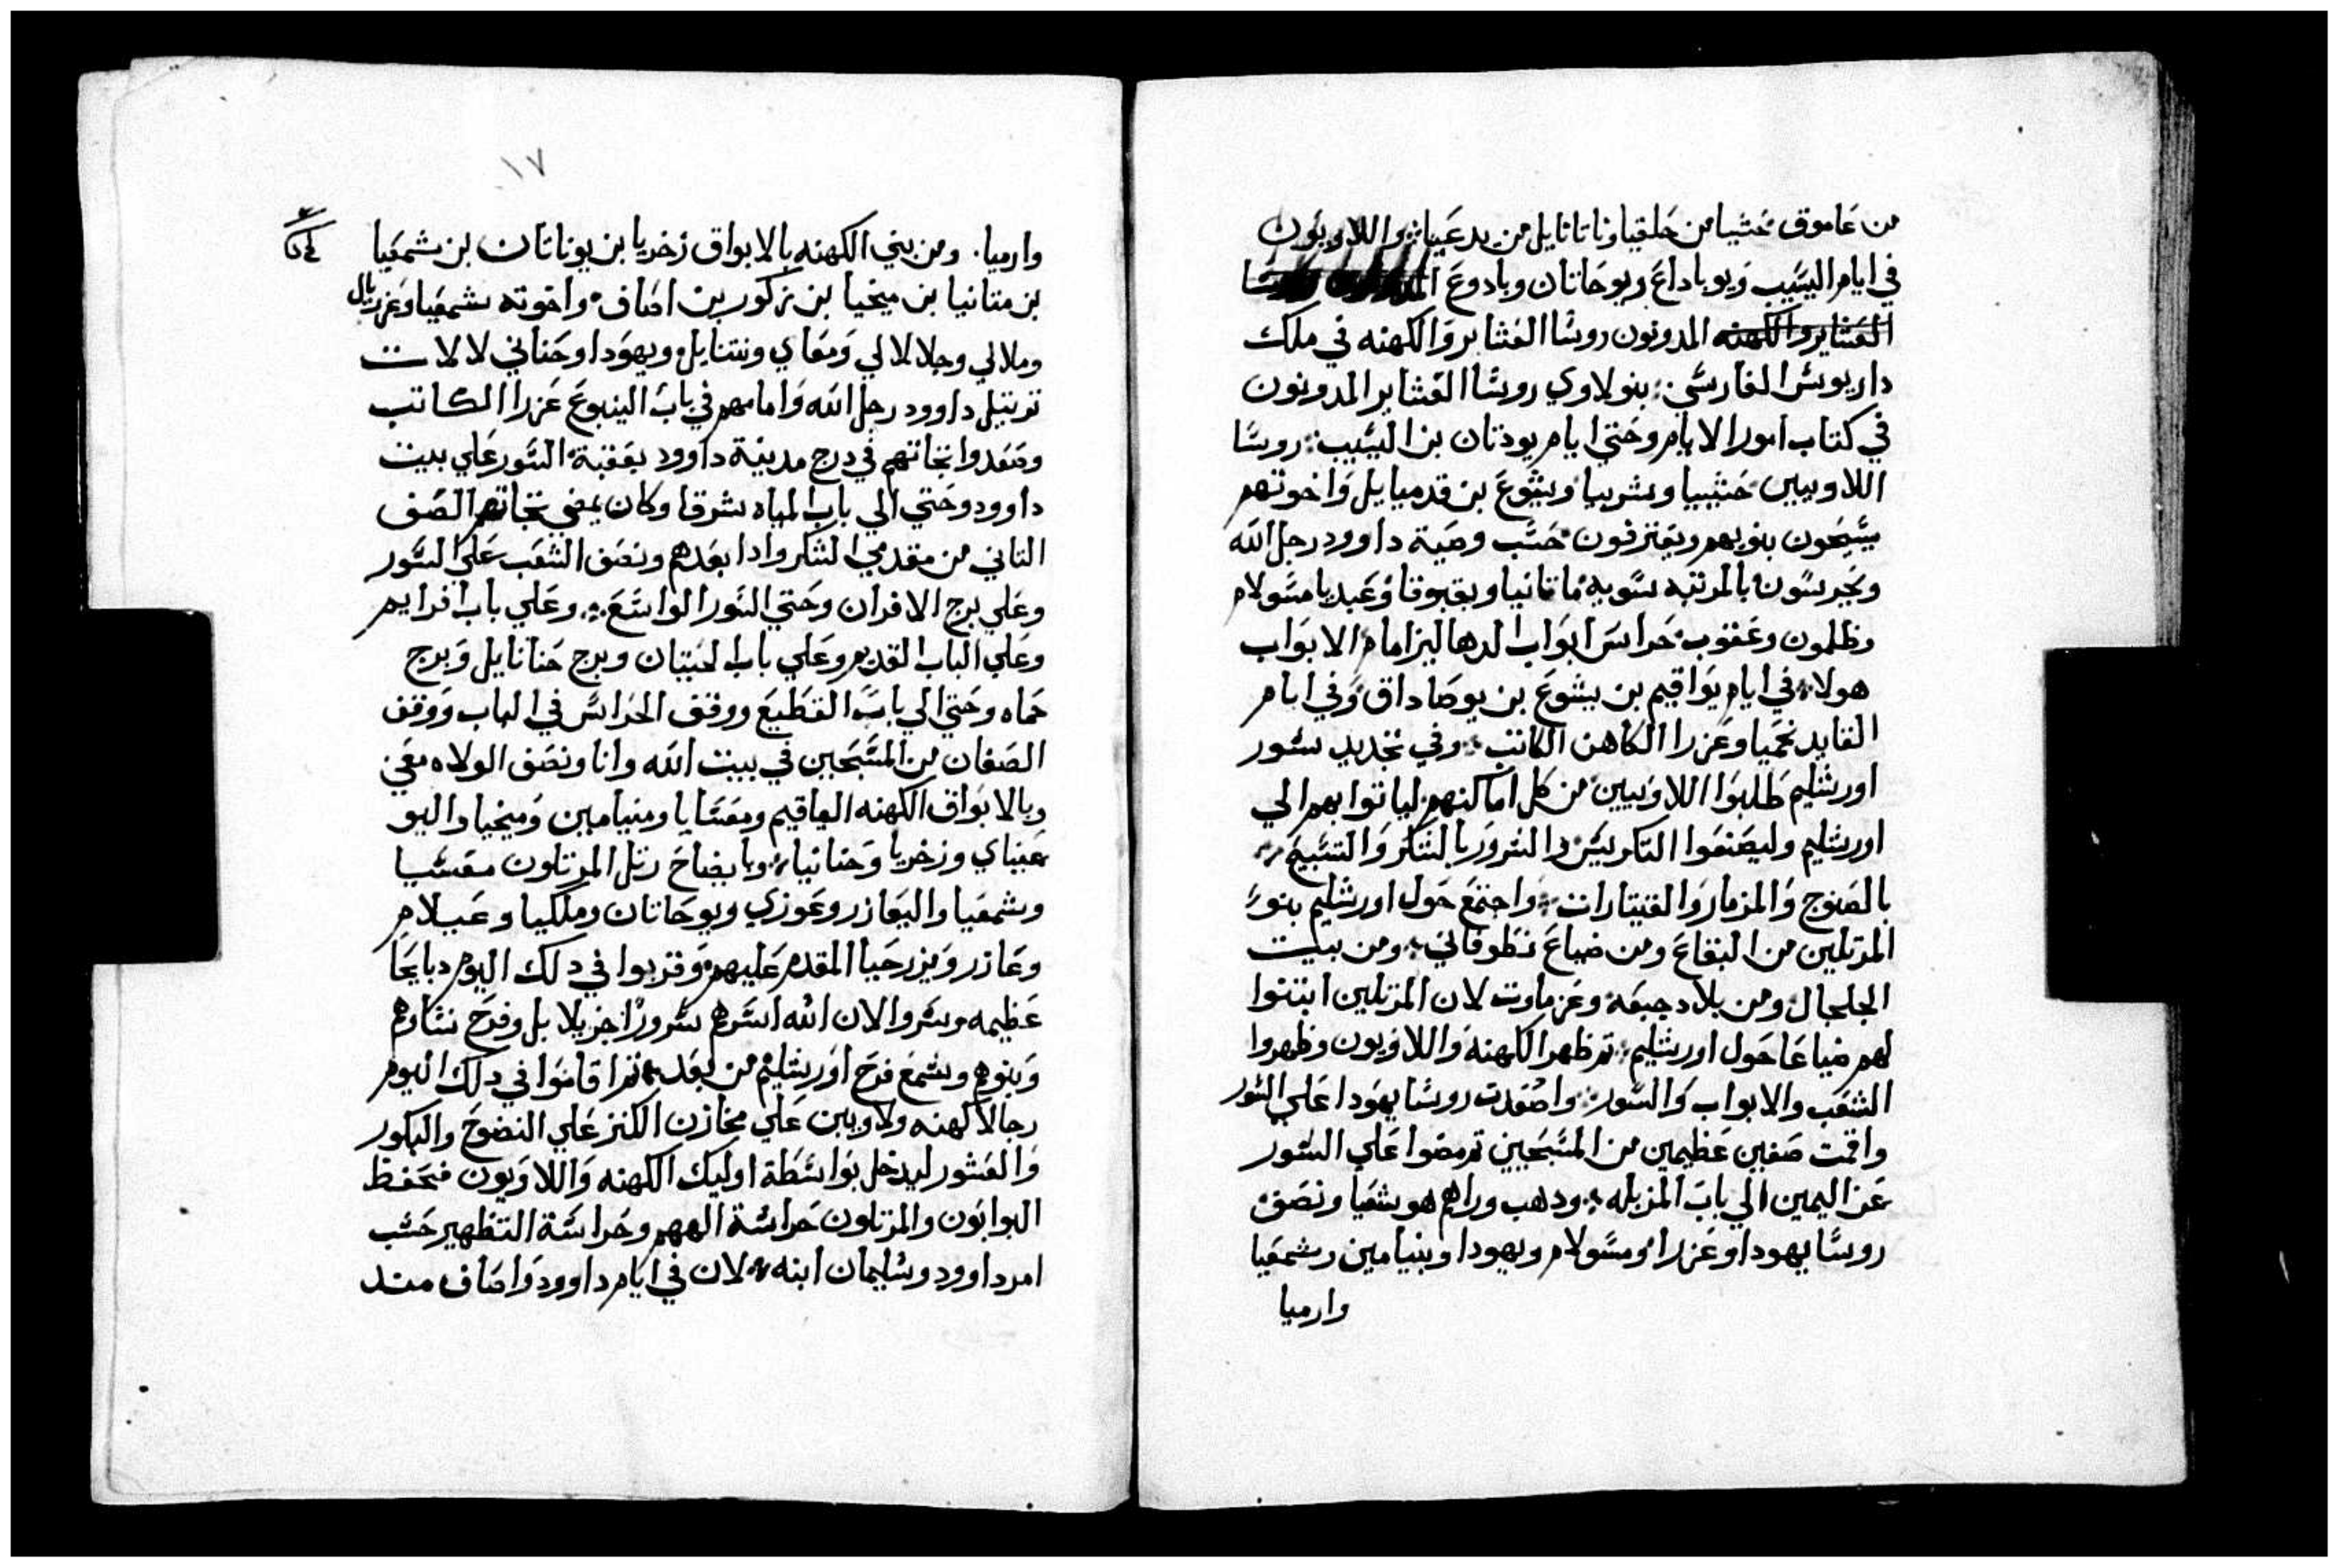 من عاموق حشيا من حلقيا وناتانايل من يدعيا واللاويون
في ايام اليشيب ويوياداع ويوحانان ويادوع
العشاير والكهنه المدونون روسا العشاير والكهنه في ملك
داريوس الفارسي بنو لاوي روسا العشاير المدونون
في كتاب امور الايام وحتي ايام يودتان بن اليشيب روسا
اللاويين حشبيا وشربيا ويشوع بن قدميايل واخوتهم
يسبحون بنوبهم ويعترفون حسب وصية داوود رجل الله
ويحرسون بالمرتبه سويه ماتانيا وبقبوقا وعبديا مسولام
وظلمون وعقوب حراس ابواب الدهاليز امام الابواب
هولاء في ايام يواقيم بن يشوع بن يوصاداق وفي ايام
القايد نحميا وعزرا الكاهن الكاتب وفي تجديد سور
اورشليم طلبوا اللاويين من كل اماكنهم لياتوا بهم الي
اورشليم وليصنعوا التكريس والسرور بالشكر والتسبيح
بالصنوج والمزمار والقيتارات واجتمع حول اورشليم بنو
المرتلين من البقاع ومن ضياع نطوفاتي ومن بيت
الجلجال ومن بلاد جبعة وعزماوت لان المرتلين ابتنوا
لهم ضياعا حول اورشليم ثم طهر الكهنة واللاويون وطهروا
الشعب والابواب والسور واصعدت روسا يهودا علي السور
واقمت صفين عظيمين من المسبحين ثم مضوا علي السور
عن اليمين الي باب المزبله ودهب وراهم هوشعيا ونصف
روسا يهودا وعزرا ومسولام ويهودا وبنيامين وشمعيا
وارميا
١٧
وارميا ومن بني الكهنه بالابواق زخريا بن يوناتان بن شمعيا
بن متانيا بن ميخيا بن زكور بن اصاف واخوته شمعيا وعزريال
وملالي وجلالالي ومعاي ونتنايل ويهودا وحناني لالات
ترتيل داوود رجل الله وامامهم في باب الينبوع عزرا الكاتب
وصعدوا تجاتهم في درج مدينة داوود بعقبة السور علي بيت
داوود وحتي الي باب المياه شرقا وكان يمضي تجاتهم الصف
التاني من مقدمي الشكر وادا بعدهم ونصف الشعب علي السور
وعلي برج الافران وحتي السور الواسع وعلي باب افرايم
وعلي الباب القديم وعلي باب الحيتان وبرج حنانايل وبرج
حماه وحتي الي باب القطيع ووقف الحراس في الباب ووقف
الصفان من المسبحين في بيت الله وانا ونصف الولاه معي
وبالابواق الكهنه الياقيم ومعسايا ومنيامين وميخيا واليو
عيناي وزخريا وحنانيا وبايضاح رتل المرتلون معسيا
وشمعيا واليعازر وعوزي ويوحانان وملكيا وعيلام
وعازر ويزرحيا المقدم عليهم وقربوا في دلك اليوم دبايحا
عظيمه وسروا لان الله اسرهم سرورا جزيلا بل وفرح نساوهم
وبنوهم وسمع فرح اورشليم من بعد ثم اقاموا في دلك اليوم
رجالا كهنه ولاويين علي مخازن الكنز علي النضوح والبكور
والعشور ليدخل بواسطة اوليك الكهنه واللاويون فحفظ
البوابون والمرتلون حراسة الههم وحراسة التطهير حسب
امر داوود وسليمان ابنه لان في ايام داوود واصاف مند